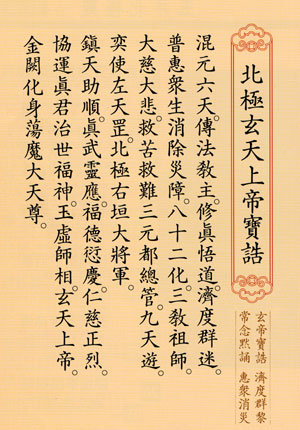 北極玄天上帝寶誥
混元六天。傳法教主。修眞悟道。濟度群迷。
普惠衆生消除災障。八十二化。三教祖師。
大慈大悲。救苦救難三元都總管。九天遊
奕使左天罡。北極右垣大將軍。
鎭天助順。眞武靈應。福德衍慶。仁慈正烈。
協運眞君治世福神。玉虛師相。玄天上帝。
金闕化身蕩魔大天尊。
玄帝寶誥 濟度群黎
常念默誦 惠衆消災